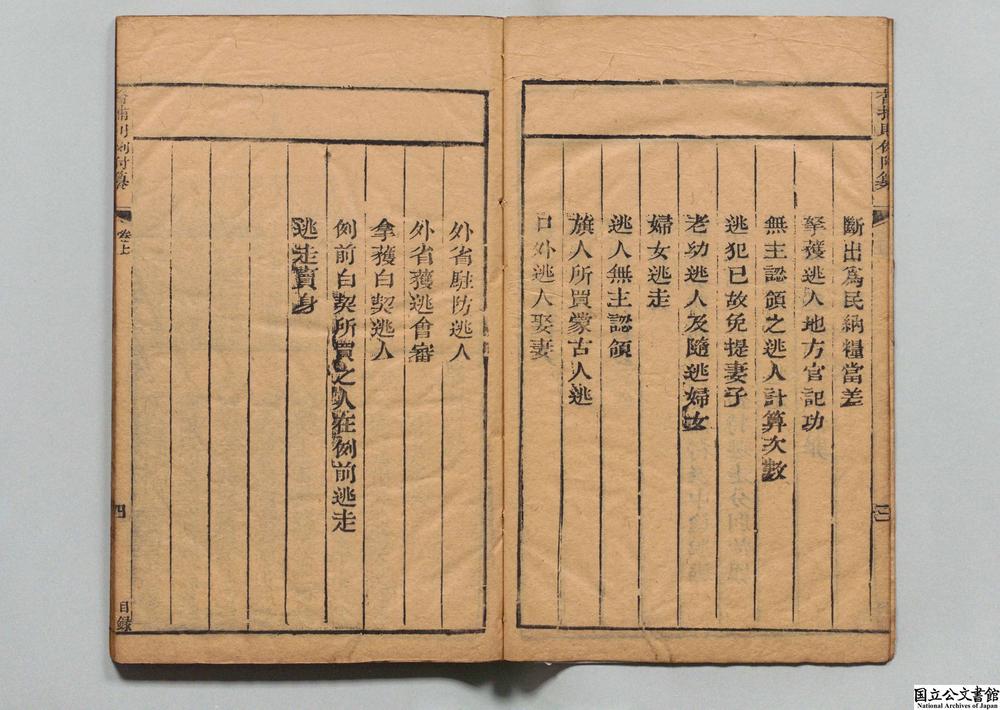 斷出爲民納糧當差
拏獲逃人地方官記功
無主認領之逃人計算次數
逃犯已故免提妻子
老幼逃人及隨逃婦女
婦女逃走
逃人無主認領
旗人所買蒙古人逃
口外逃人娶妻
外省駐防逃人
外省獲逃會審
拿獲白契逃人
例前白契所買之人在例前逃走
逃走賣身
卷上
四
目錄
国立公文書館
National Archives of Japan